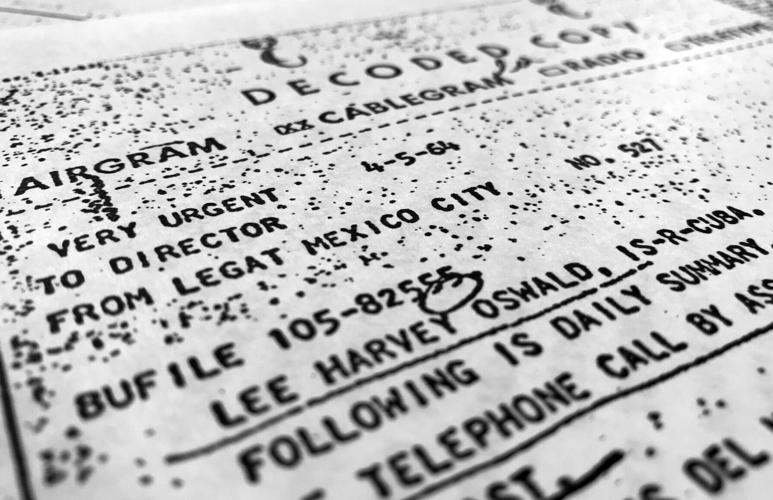 DECODED COPY
AIRGRAM CABLEGRAM RADIO
4-5-64 NO. 527
VERY URGENT
TO DIRECTOR
FROM LEGAT MEXICO CITY
BUFILE 105-82555
LEE HARVEY OSWALD, IS-R-CUBA.
FOLLOWING IS DAILY SUMMARY
TELEPHONE CALL BY
DEL